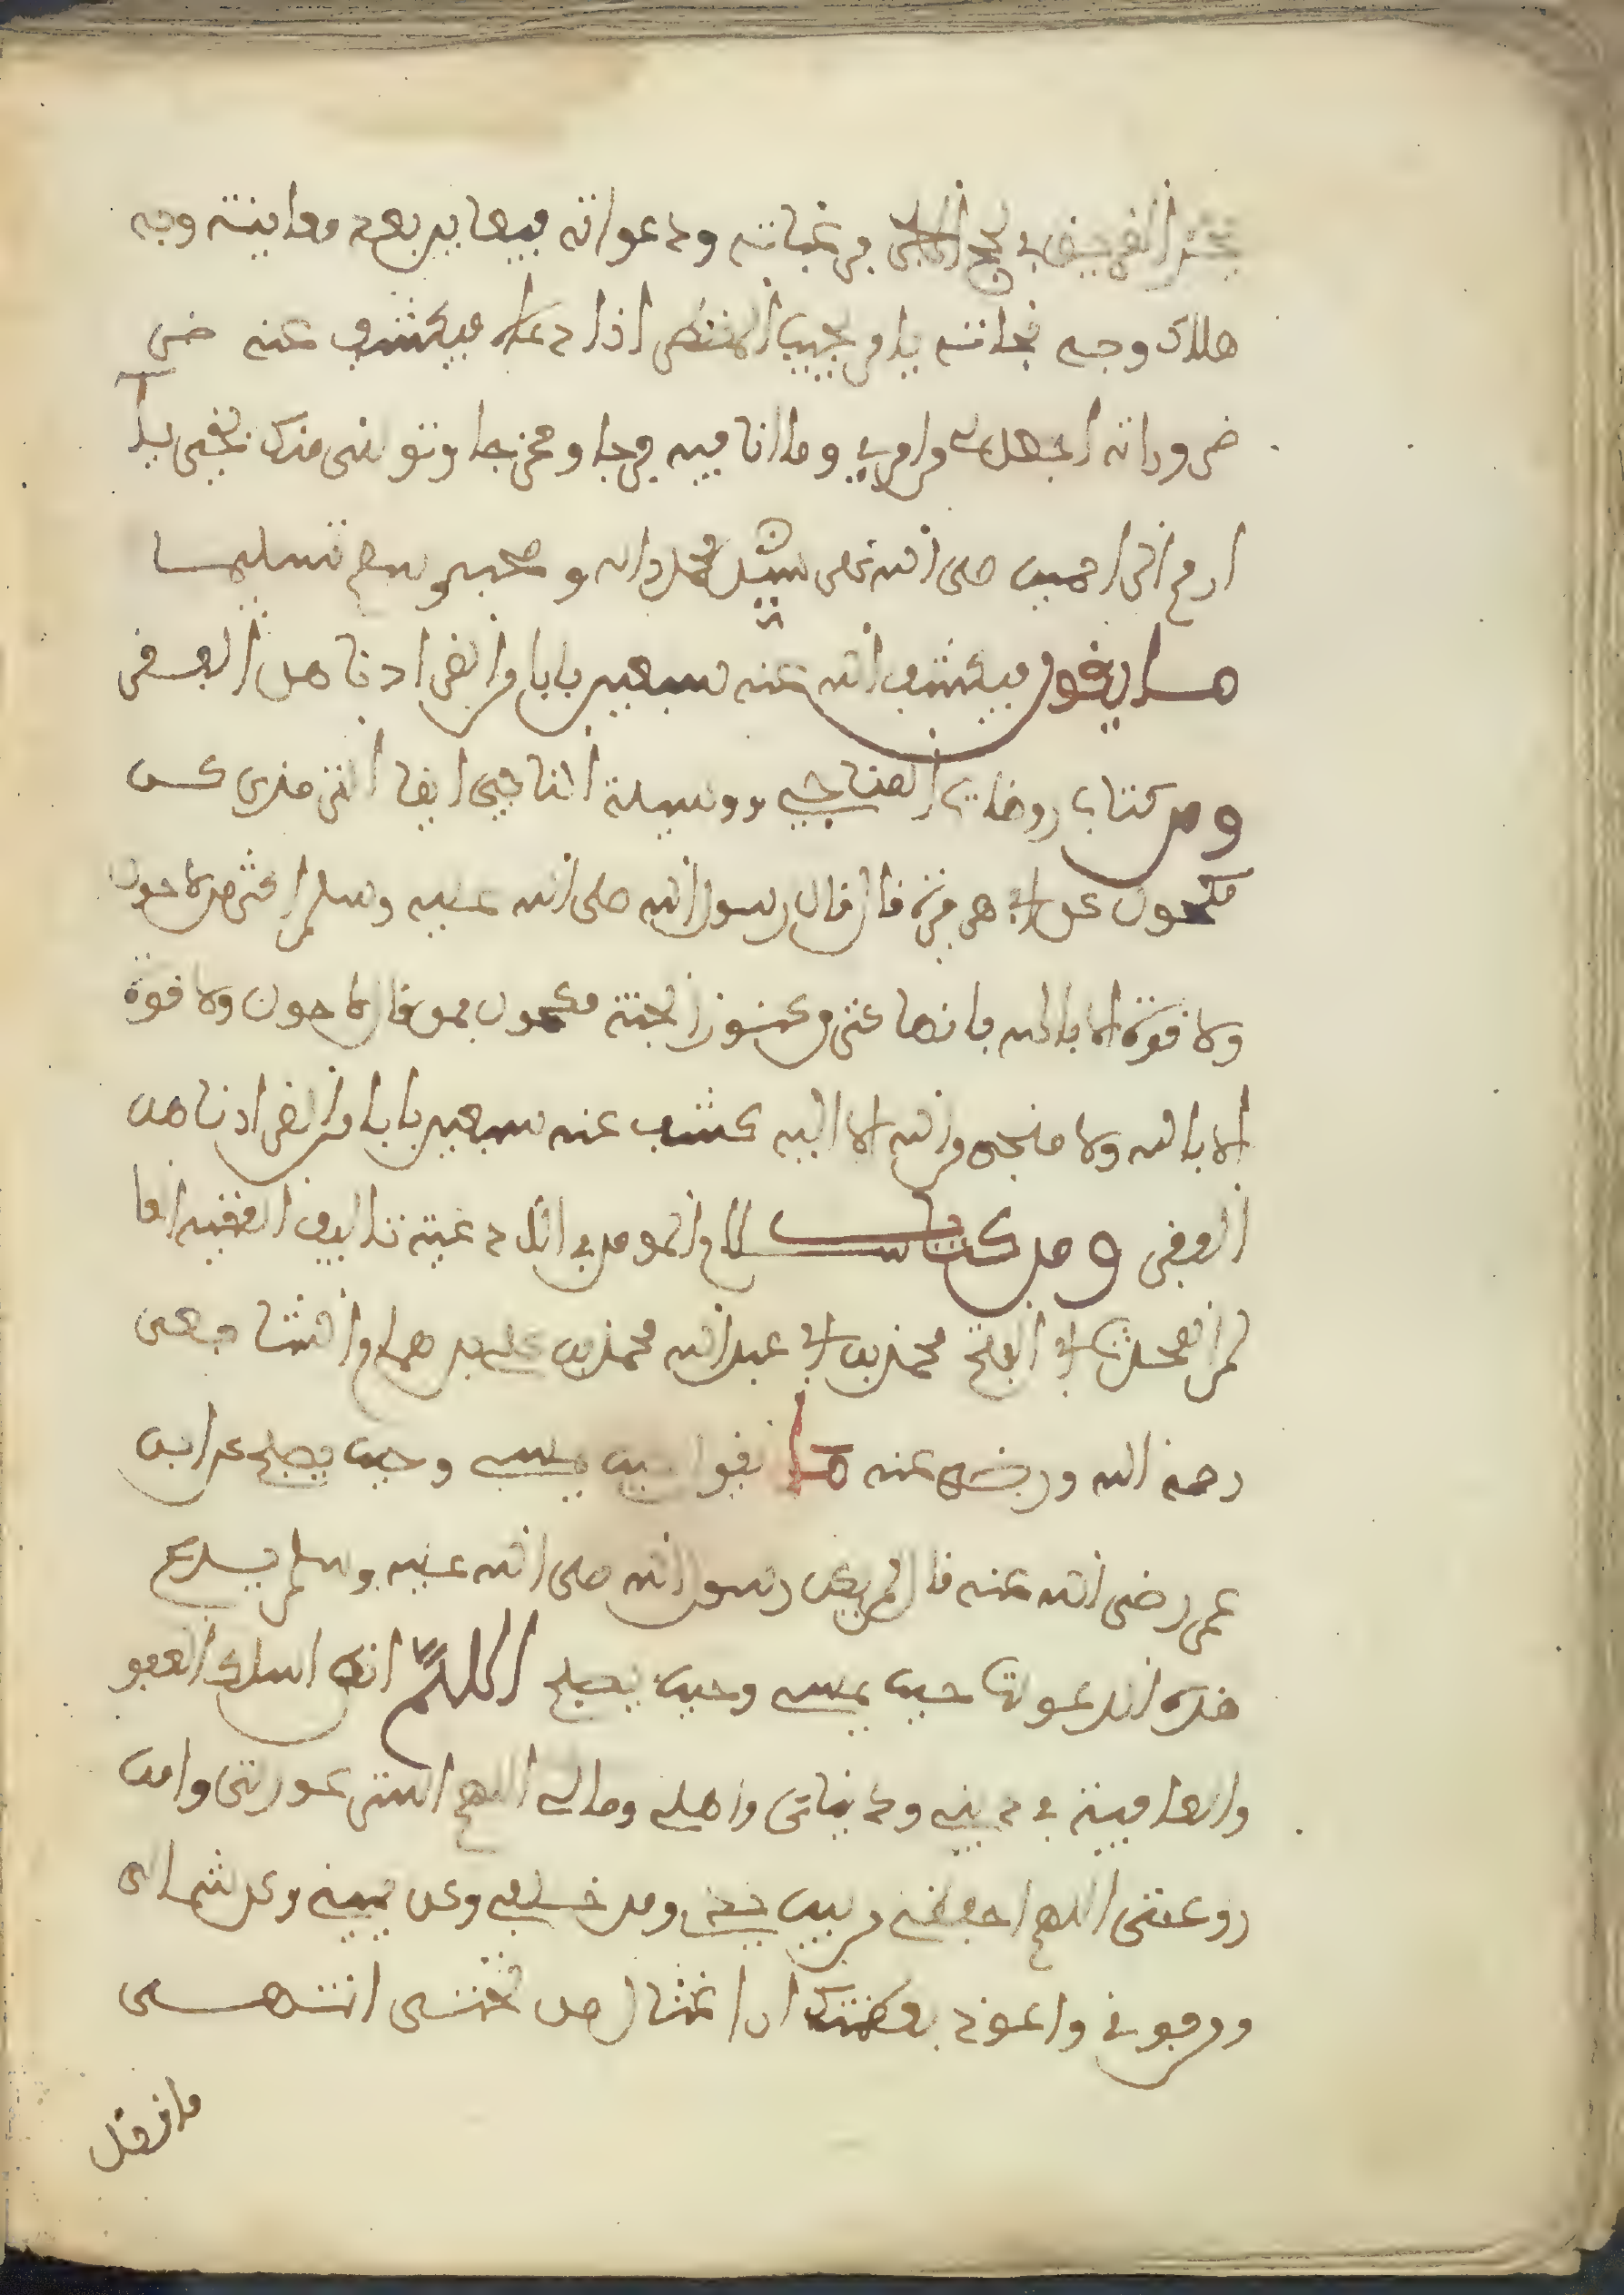 الغريق في لجج البحر من رغباته ودعواته فيعاين بعد معاينته وجه
هلاك وجه نجاته يا من يجيب المضطر اذا دعاه فيكشف عنه ضر
ضروراته اجعل لي من امري وما انا فيه فرجا ومخرجا وتولني منك بخفي يا
ارحم الراحمين صلى الله على سيدنا محمد واله وصحبه وسلم تسليما
ما يقول فيكشف الله عنه سبعين بابا من الضر ادناهن الفقر
ومن كتاب روضات الجنات ووسيلة الناجي ايضا الترمذي عن
مكحول عن ابي هريرة قال قال رسول الله صلى الله عليه وسلم اكثر من لا حول
ولا قوة الا بالله فانها كنز من كنوز الجنة مكحول فمن قال لا حول ولا قوة
الا بالله ولا منجى من الله الا اليه كشف عنه سبعين بابا من الضر ادناهن
الفقر ومن كتاب سلاح المومن في الادعية تاليف الفقيه العا
لم المحدث ابي الفتح محمد بن ابي عبد الله محمد بن علي بن همام الشافعي
رحمه الله ورضي عنه ما يقول حين يمسي وحين يصبح عن ابن
عمر رضي الله عنه قال لم يكن رسول الله صلى الله عليه وسلم يدع
هذه الدعوات حين يمسي وحين يصبح اللهم اني اسلك العفو
والعافية في ديني ودنياي واهلي ومالي اللهم استر عورتي وامن
روعتي اللهم احفظني من بين يدي ومن خلفي وعن يميني وعن شمالي
ومن فوقي واعوذ بعظمتك ان اغتال من تحتي انتهى